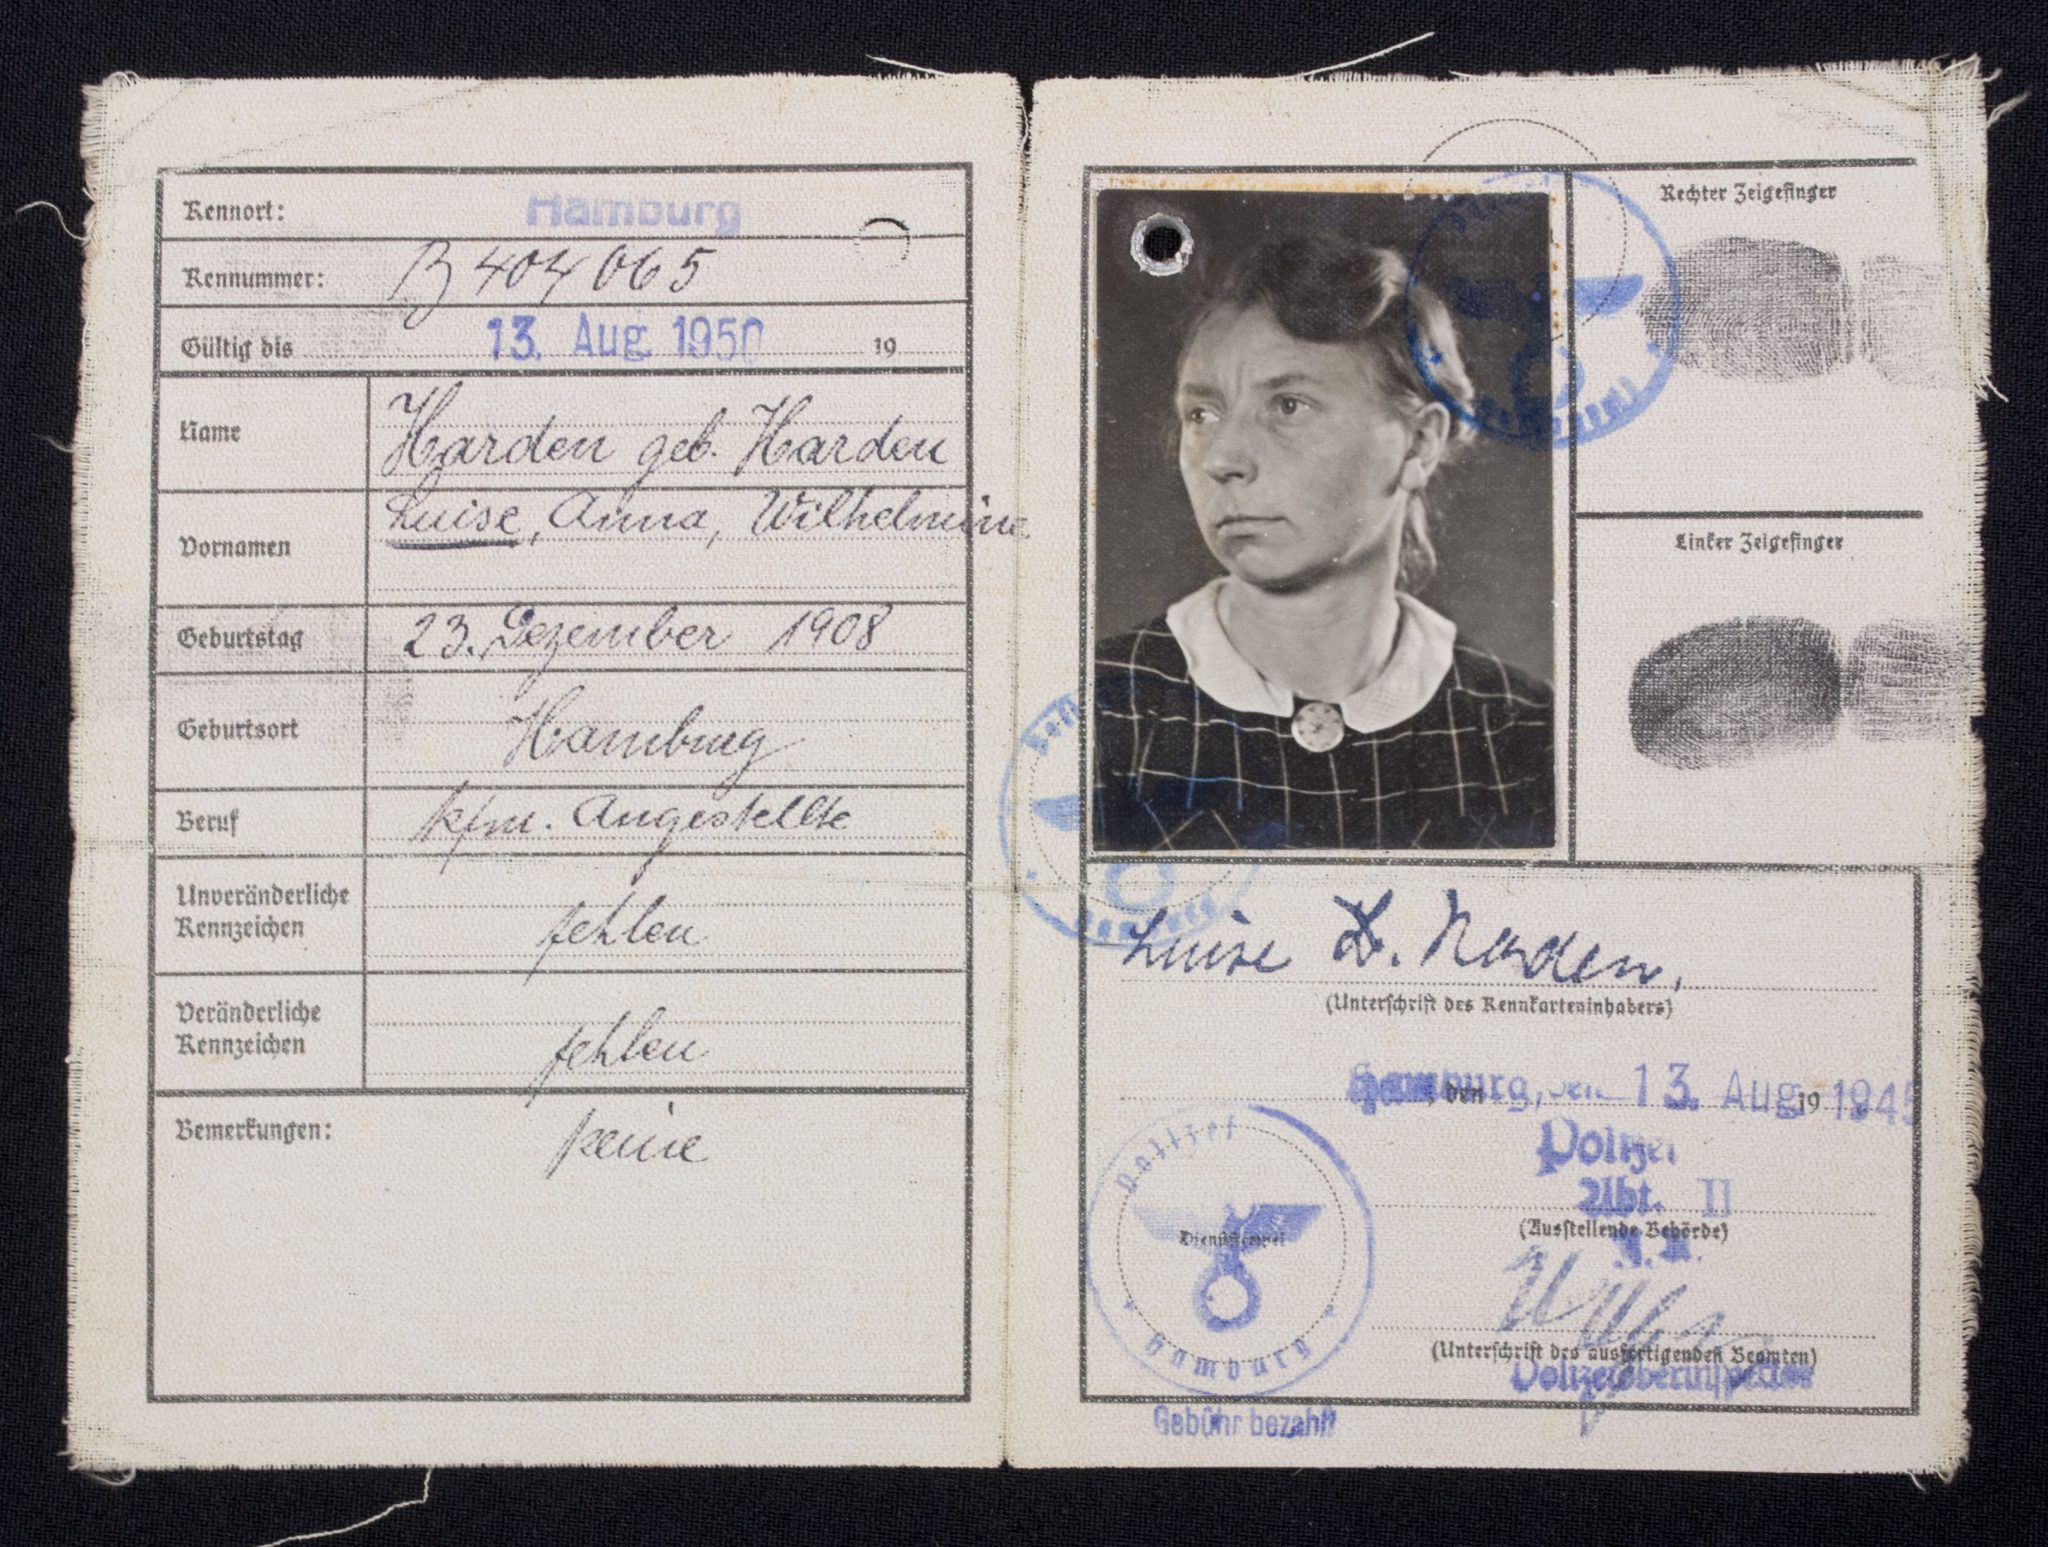 Kennort: Hamburg
Kennummer: B 404 065
Gültig bis 13. Aug. 1950 19
Name Harden geb. Harden
Vornamen Luise, Anna, Wilhelmine
Geburtstag 23. Dezember 1908
Geburtsort Hamburg
Beruf kfm. Angestellte
Unveränderliche
Kennzeichen fehlen
Veränderliche
Kennzeichen fehlen
Bemerkungen: keine
Rechter Zeigefinger
Linker Zeigefinger
Luise Harden
(Unterschrift des Kennkarteninhabers)
Hamburg, den 13. Aug. 1945
, den 19
Polizei
Abt. II
(Ausstellende Behörde)
Polizei
Dienststempel
Hamburg
(Unterschrift des ausfertigenden Beamten)
Polizeioberinspektor
Gebühr bezahlt